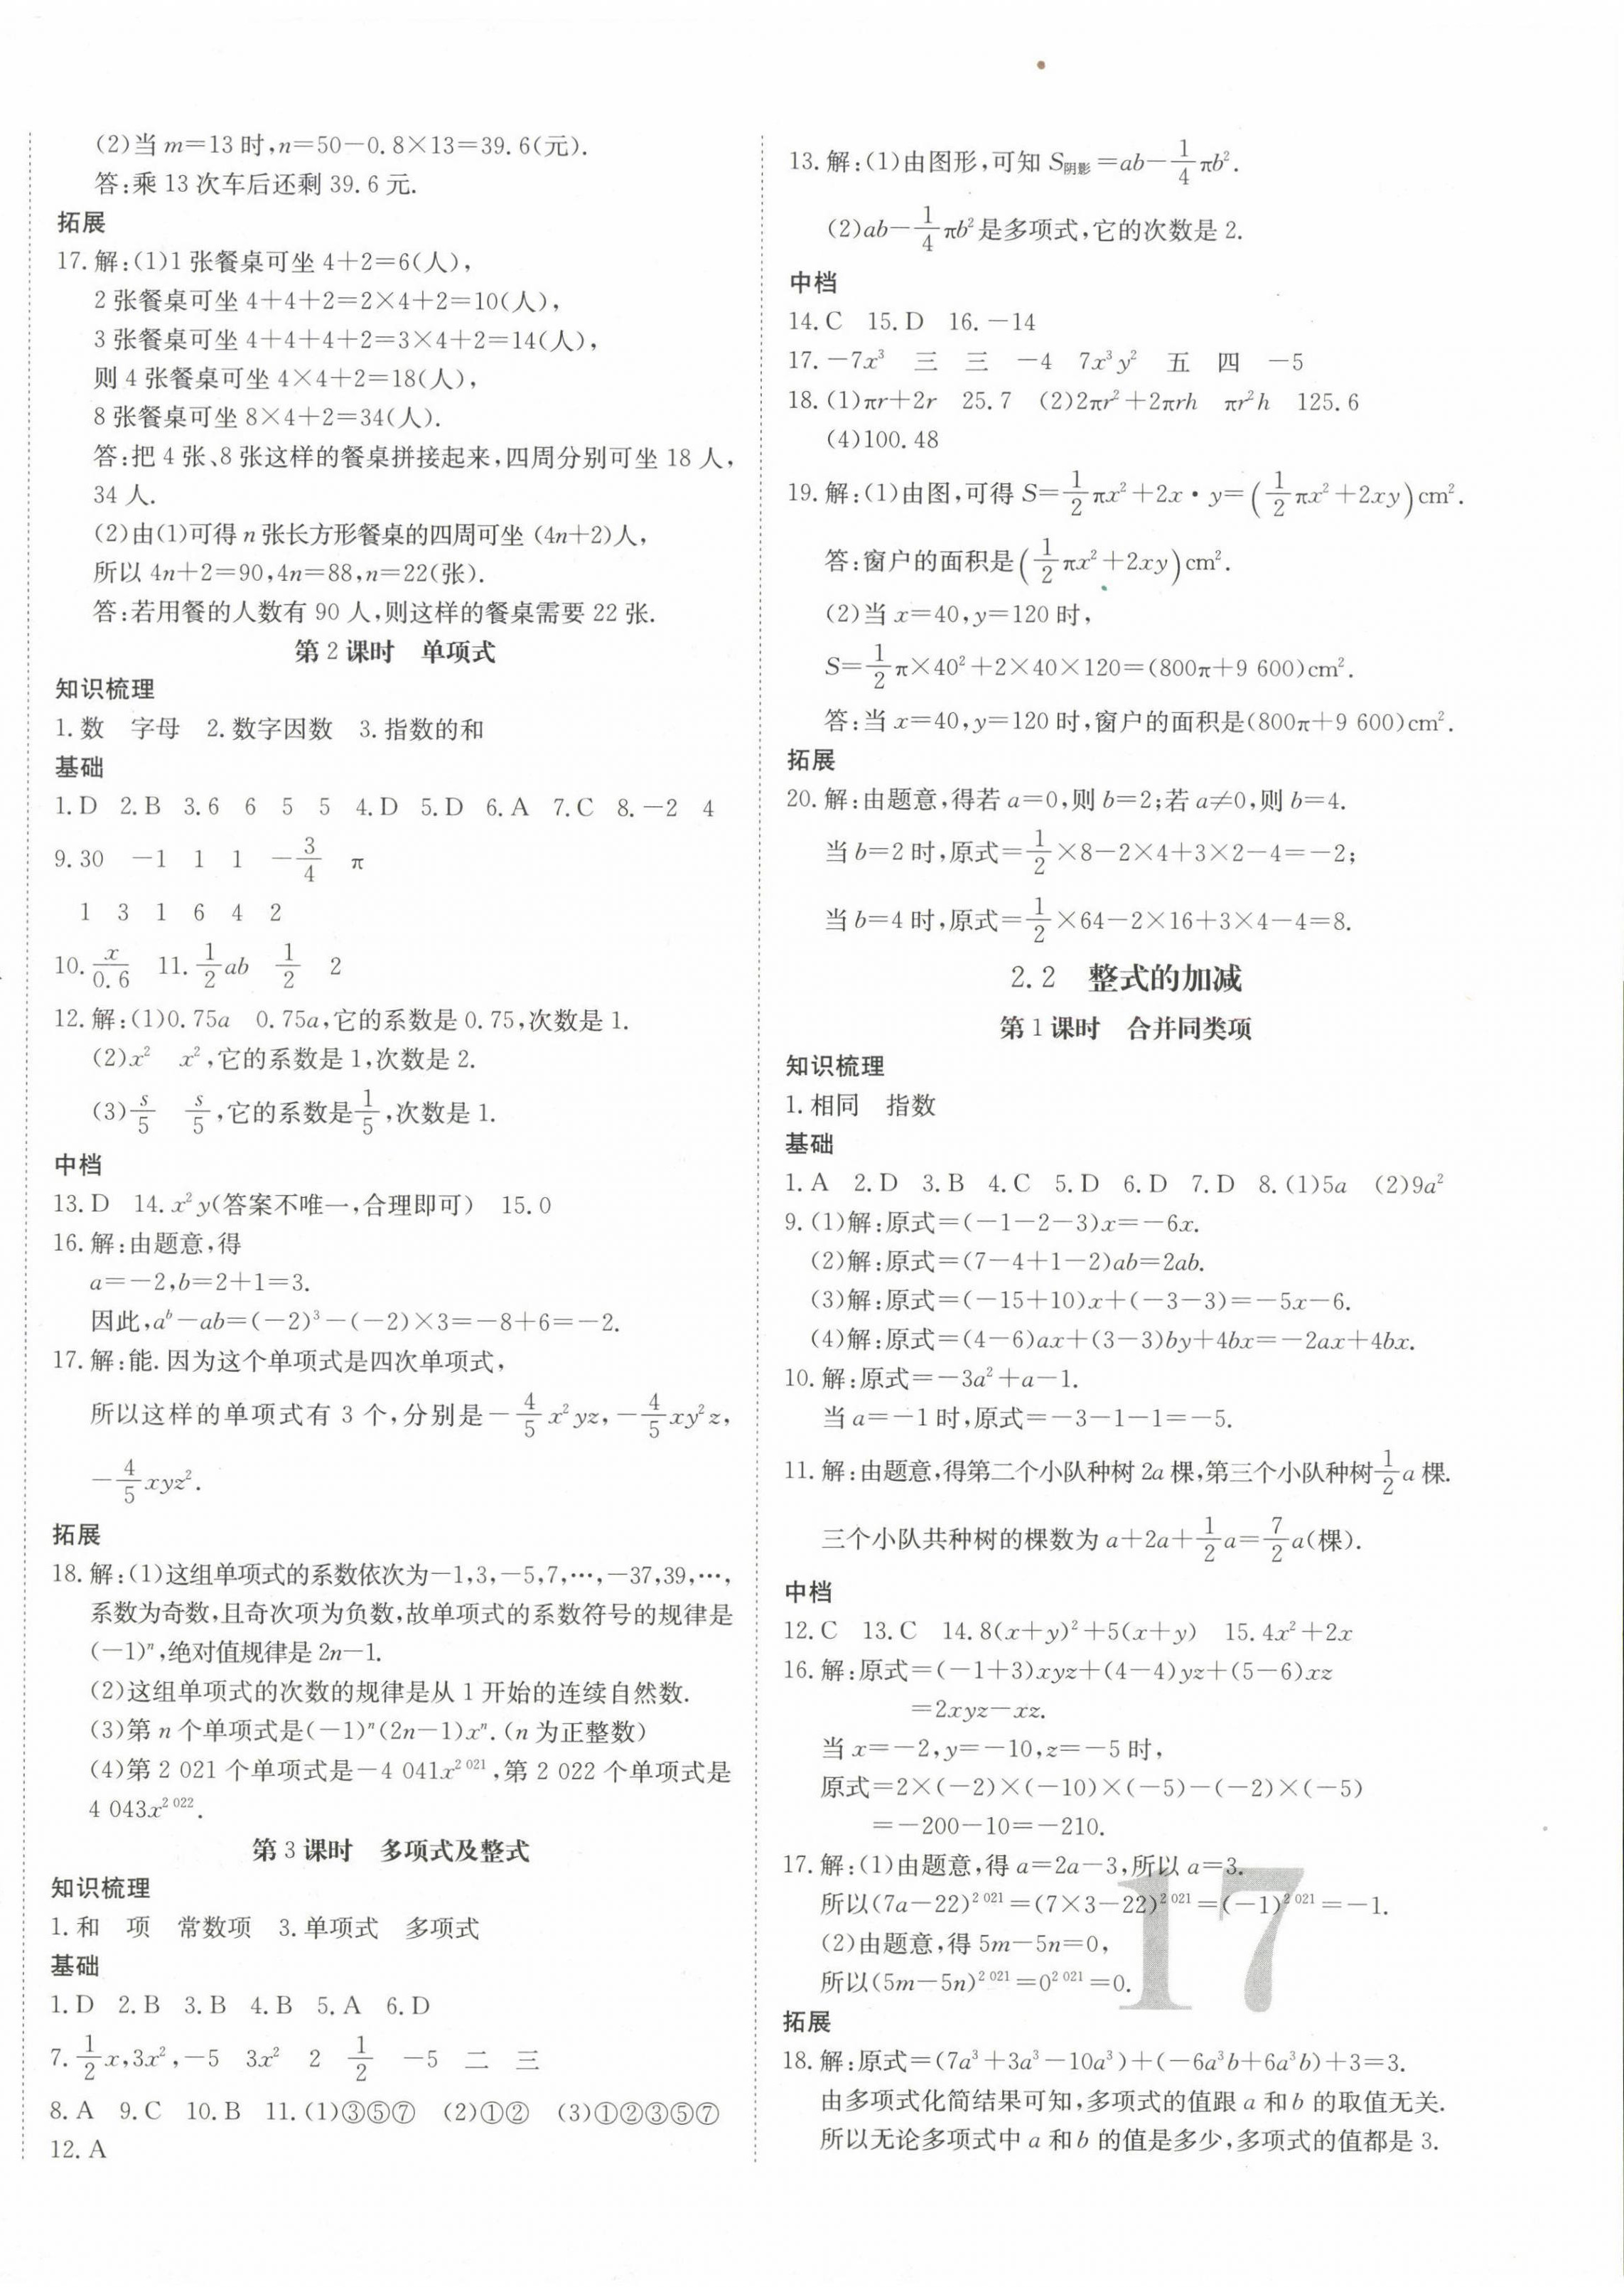 (2)当 m=13 时,n=50-0.8×13=39.6(元).
答:乘 13 次车后还剩 39.6 元.
拓展
17.解:(1)1 张餐桌可坐 4+2=6(人),
2 张餐桌可坐 4+4+2=2×4+2=10(人),
3 张餐桌可坐 4+4+4+2=3×4+2=14(人),
则 4 张餐桌可坐 4×4+2=18(人),
8 张餐桌可坐 8×4+2=34(人).
答:把 4 张、8 张这样的餐桌拼接起来,四周分别可坐 18 人,
34 人.
(2)由(1)可得 n 张长方形餐桌的四周可坐 (4n+2)人,
所以 4n+2=90,4n=88,n=22(张).
答:若用餐的人数有 90 人,则这样的餐桌需要 22 张.
第 2 课时 单项式
知识梳理
1.数 字母 2.数字因数 3.指数的和
基础
1.D 2.B 3.6 6 5 5 4.D 5.D 6.A 7.C 8.-2 4
9.30 -1 1 1 -3/4 π
1 3 1 6 4 2
10.x/0.6 11.1/2ab 1/2 2
12.解:(1)0.75a 0.75a,它的系数是 0.75,次数是 1.
(2)x² x²,它的系数是 1,次数是 2.
(3)s/5 s/5,它的系数是1/5,次数是 1.
中档
13.D 14.x²y(答案不唯一,合理即可) 15.0
16.解:由题意,得
a=-2,b=2+1=3.
因此,aᵇ-ab=(-2)³-(-2)×3=-8+6=-2.
17.解:能.因为这个单项式是四次单项式,
所以这样的单项式有 3 个,分别是-4/5x²yz,-4/5xy²z,
-4/5xyz².
拓展
18.解:(1)这组单项式的系数依次为-1,3,-5,7,…,-37,39,…,
系数为奇数,且奇次项为负数,故单项式的系数符号的规律是
(-1)ⁿ,绝对值规律是 2n-1.
(2)这组单项式的次数的规律是从 1 开始的连续自然数.
(3)第 n 个单项式是(-1)ⁿ(2n-1)xⁿ.(n 为正整数)
(4)第 2 021 个单项式是-4 041x²⁰²¹,第 2 022 个单项式是
4 043x²⁰²².
第 3 课时 多项式及整式
知识梳理
1.和 项 常数项 3.单项式 多项式
基础
1.D 2.B 3.B 4.B 5.A 6.D
7.1/2x,3x²,-5 3x² 2 1/2 -5 二 三
8.A 9.C 10.B 11.(1)③⑤⑦ (2)①② (3)①②③⑤⑦
12.A
13.解:(1)由图形,可知 S阴影=ab-1/4πb².
(2)ab-1/4πb²是多项式,它的次数是 2.
中档
14.C 15.D 16.-14
17.-7x³ 三 三 -4 7x³y² 五 四 -5
18.(1)πr+2r 25.7 (2)2πr²+2πrh πr²h 125.6
(4)100.48
19.解:(1)由图,可得 S=1/2πx²+2x·y=(1/2πx²+2xy)cm².
答:窗户的面积是(1/2πx²+2xy)cm².
(2)当 x=40,y=120 时,
S=1/2π×40²+2×40×120=(800π+9 600)cm².
答:当 x=40,y=120 时,窗户的面积是(800π+9 600)cm².
拓展
20.解:由题意,得若 a=0,则 b=2;若 a≠0,则 b=4.
当 b=2 时,原式=1/2×8-2×4+3×2-4=-2;
当 b=4 时,原式=1/2×64-2×16+3×4-4=8.
2.2 整式的加减
第 1 课时 合并同类项
知识梳理
1.相同 指数
基础
1.A 2.D 3.B 4.C 5.D 6.D 7.D 8.(1)5a (2)9a²
9.(1)解:原式=(-1-2-3)x=-6x.
(2)解:原式=(7-4+1-2)ab=2ab.
(3)解:原式=(-15+10)x+(-3-3)=-5x-6.
(4)解:原式=(4-6)ax+(3-3)by+4bx=-2ax+4bx.
10.解:原式=-3a²+a-1.
当 a=-1 时,原式=-3-1-1=-5.
11.解:由题意,得第二个小队种树 2a 棵,第三个小队种树1/2a 棵.
三个小队共种树的棵数为 a+2a+1/2a=7/2a(棵).
中档
12.C 13.C 14.8(x+y)²+5(x+y) 15.4x²+2x
16.解:原式=(-1+3)xyz+(4-4)yz+(5-6)xz
=2xyz-xz.
当 x=-2,y=-10,z=-5 时,
原式=2×(-2)×(-10)×(-5)-(-2)×(-5)
=-200-10=-210.
17.解:(1)由题意,得 a=2a-3,所以 a=3.
所以(7a-22)²⁰²¹=(7×3-22)²⁰²¹=(-1)²⁰²¹=-1.
(2)由题意,得 5m-5n=0,
所以(5m-5n)²⁰²¹=0²⁰²¹=0.
拓展
18.解:原式=(7a³+3a³-10a³)+(-6a³b+6a³b)+3=3.
由多项式化简结果可知,多项式的值跟 a 和 b 的取值无关.
所以无论多项式中 a 和 b 的值是多少,多项式的值都是 3.
17